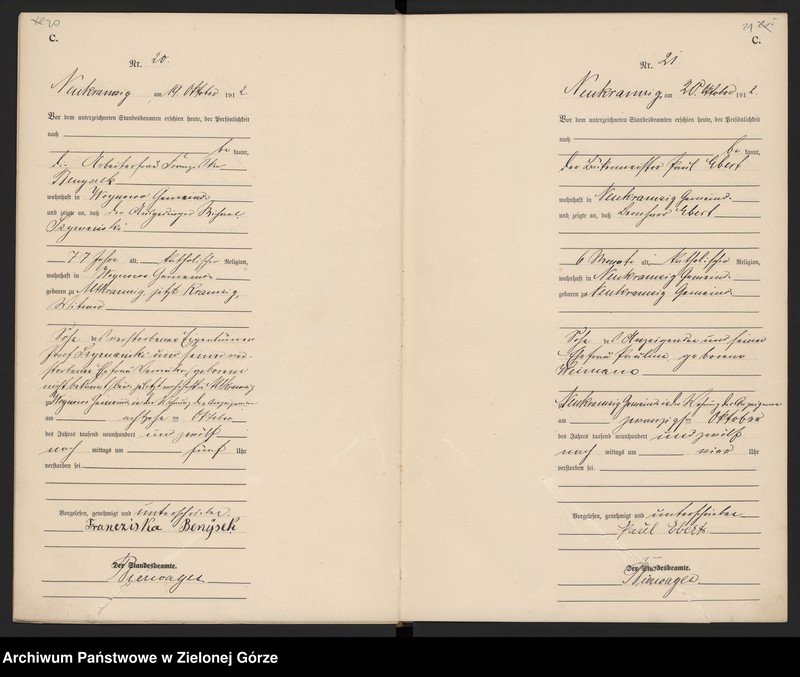 C.
Nr. 20.
Neukramzig am 19. Oktober 1912
Vor dem unterzeichneten Standesbeamten erschien heute, der Persönlichkeit
nach
be kannt,
die Arbeiterfrau Franziska
wohnhaft in Gemeinde
und zeigte an, daß der Michael
Szymanski
77 Jahre alt, katholischer Religion,
wohnhaft in Gemeinde
geboren zu Altkramzig, jetzt Kramzig,
Witwer
Sohn des verstorbenen Eigentümers
Josef Szymanski und seiner ver-
storbenen Ehefrau geborene
nicht bekannt, beide zuletzt wohnhaft in Altkramzig
zu Gemeinde in der Wohnung der Anzeigenden
am achtzehnten Oktober
des Jahres tausend neunhundert und zwölf
nach mittags um fünf Uhr
verstorben sei.
Vorgelesen, genehmigt und unterschrieben.
Franciziska Benÿsek.
Der Standesbeamte.
21
C.
Nr. 21
Neukramzig, am 20. Oktober 1912.
Vor dem unterzeichneten Standesbeamten erschien heute, der Persönlichkeit
nach
be kannt,
der Bäckermeister Paul Ebert
wohnhaft in Neukramzig Gemeinde
und zeigte an, daß Bernhard Ebert
6 Monate alt, katholischer Religion,
wohnhaft in Neukramzig Gemeinde
geboren zu Neukramzig Gemeinde
Sohn des Anzeigenden und seiner
Ehefrau Pauline geborene
Weimann
Neukramzig Gemeinde in der Wohnung des Anzeigenden
am zwanzigsten Oktober
des Jahres tausend neunhundert und zwölf
nach mittags um vier Uhr
verstorben sei.
Vorgelesen, genehmigt und unterschrieben
Paul Ebert
Der Standesbeamte.
Archiwum Państwowe w Zielonej Górze